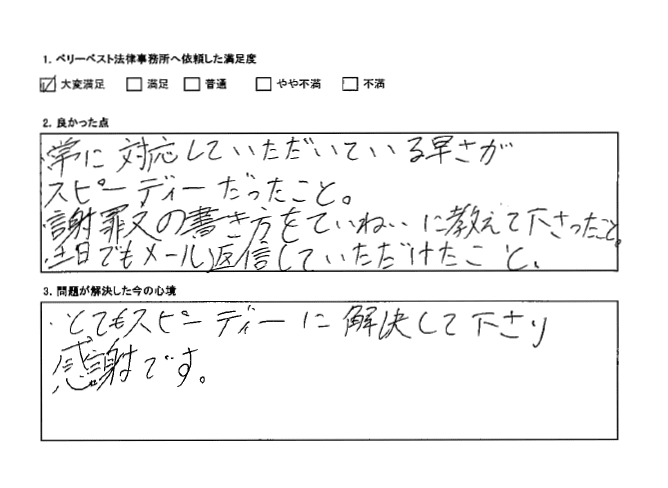 1. ベリーベスト法律事務所へ依頼した満足度
☑ 大変満足 □ 満足 □ 普通 □ やや不満 □ 不満
2. 良かった点
・常に対応していただいている早さが
スピーディーだったこと。
・謝罪文の書き方をていねいに教えて下さったこと。
・土日でもメール返信していただけたこと。
3. 問題が解決した今の心境
・とてもスピーディーに解決して下さり
感謝です。